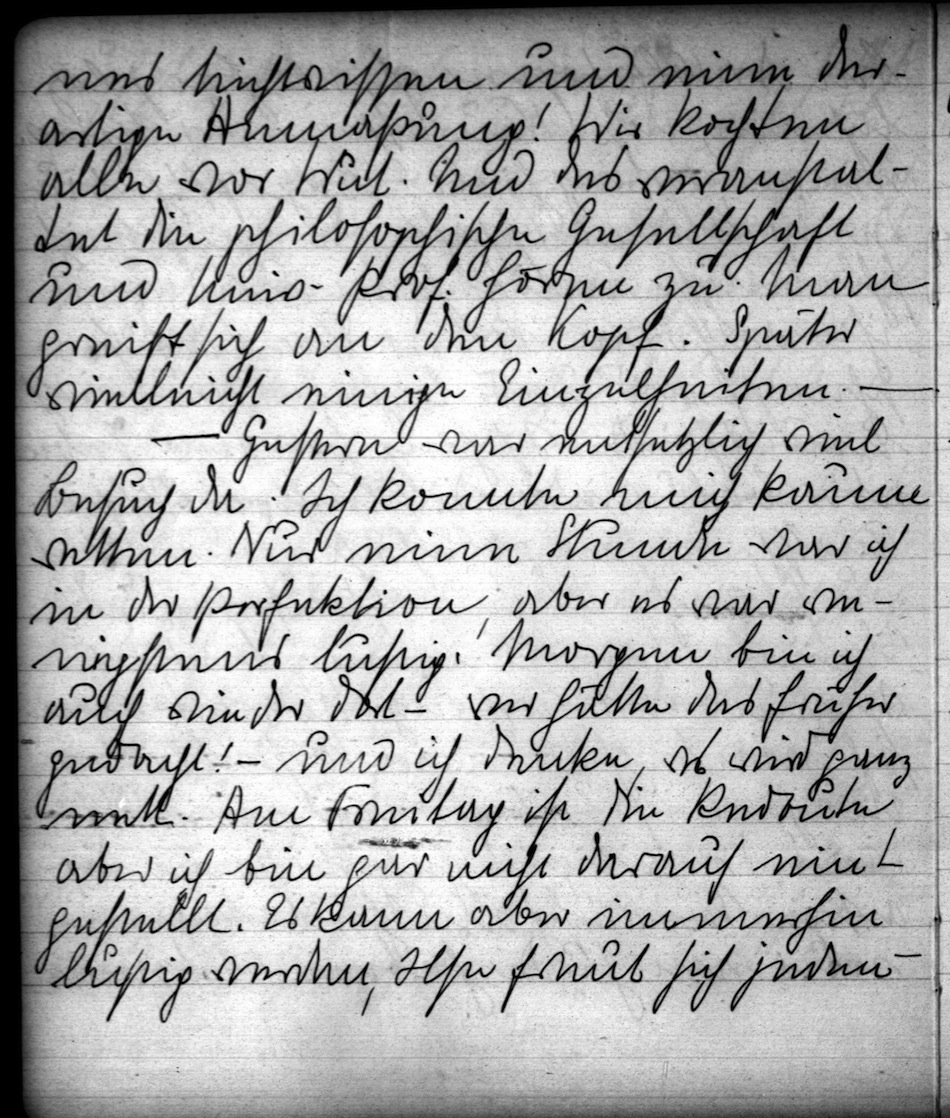 nes Nichtwissen und eine der-
artige Anmaßung! Wir kochten
alle vor Wut. Und das veranstal-
tet die philosophische Gesellschaft
und Univ. Prof. hören zu. Man
greift sich an den Kopf. Später
vielleicht einige Einzelheiten. —
— Gestern war entsetzlich viel
Besuch da. Ich konnte mich kaum
retten. Nur eine Stunde war ich
in der Perfektion, aber es war we-
nigstens lustig. Morgen bin ich
auch wieder dort – wer hätte das früher
gedacht! – und ich denke, es wird ganz
nett. Am Freitag ist die Redoute
aber ich bin gar nicht darauf ein-
gestellt. Es kann aber immerhin
lustig werden, Ilse freut sich jeden-